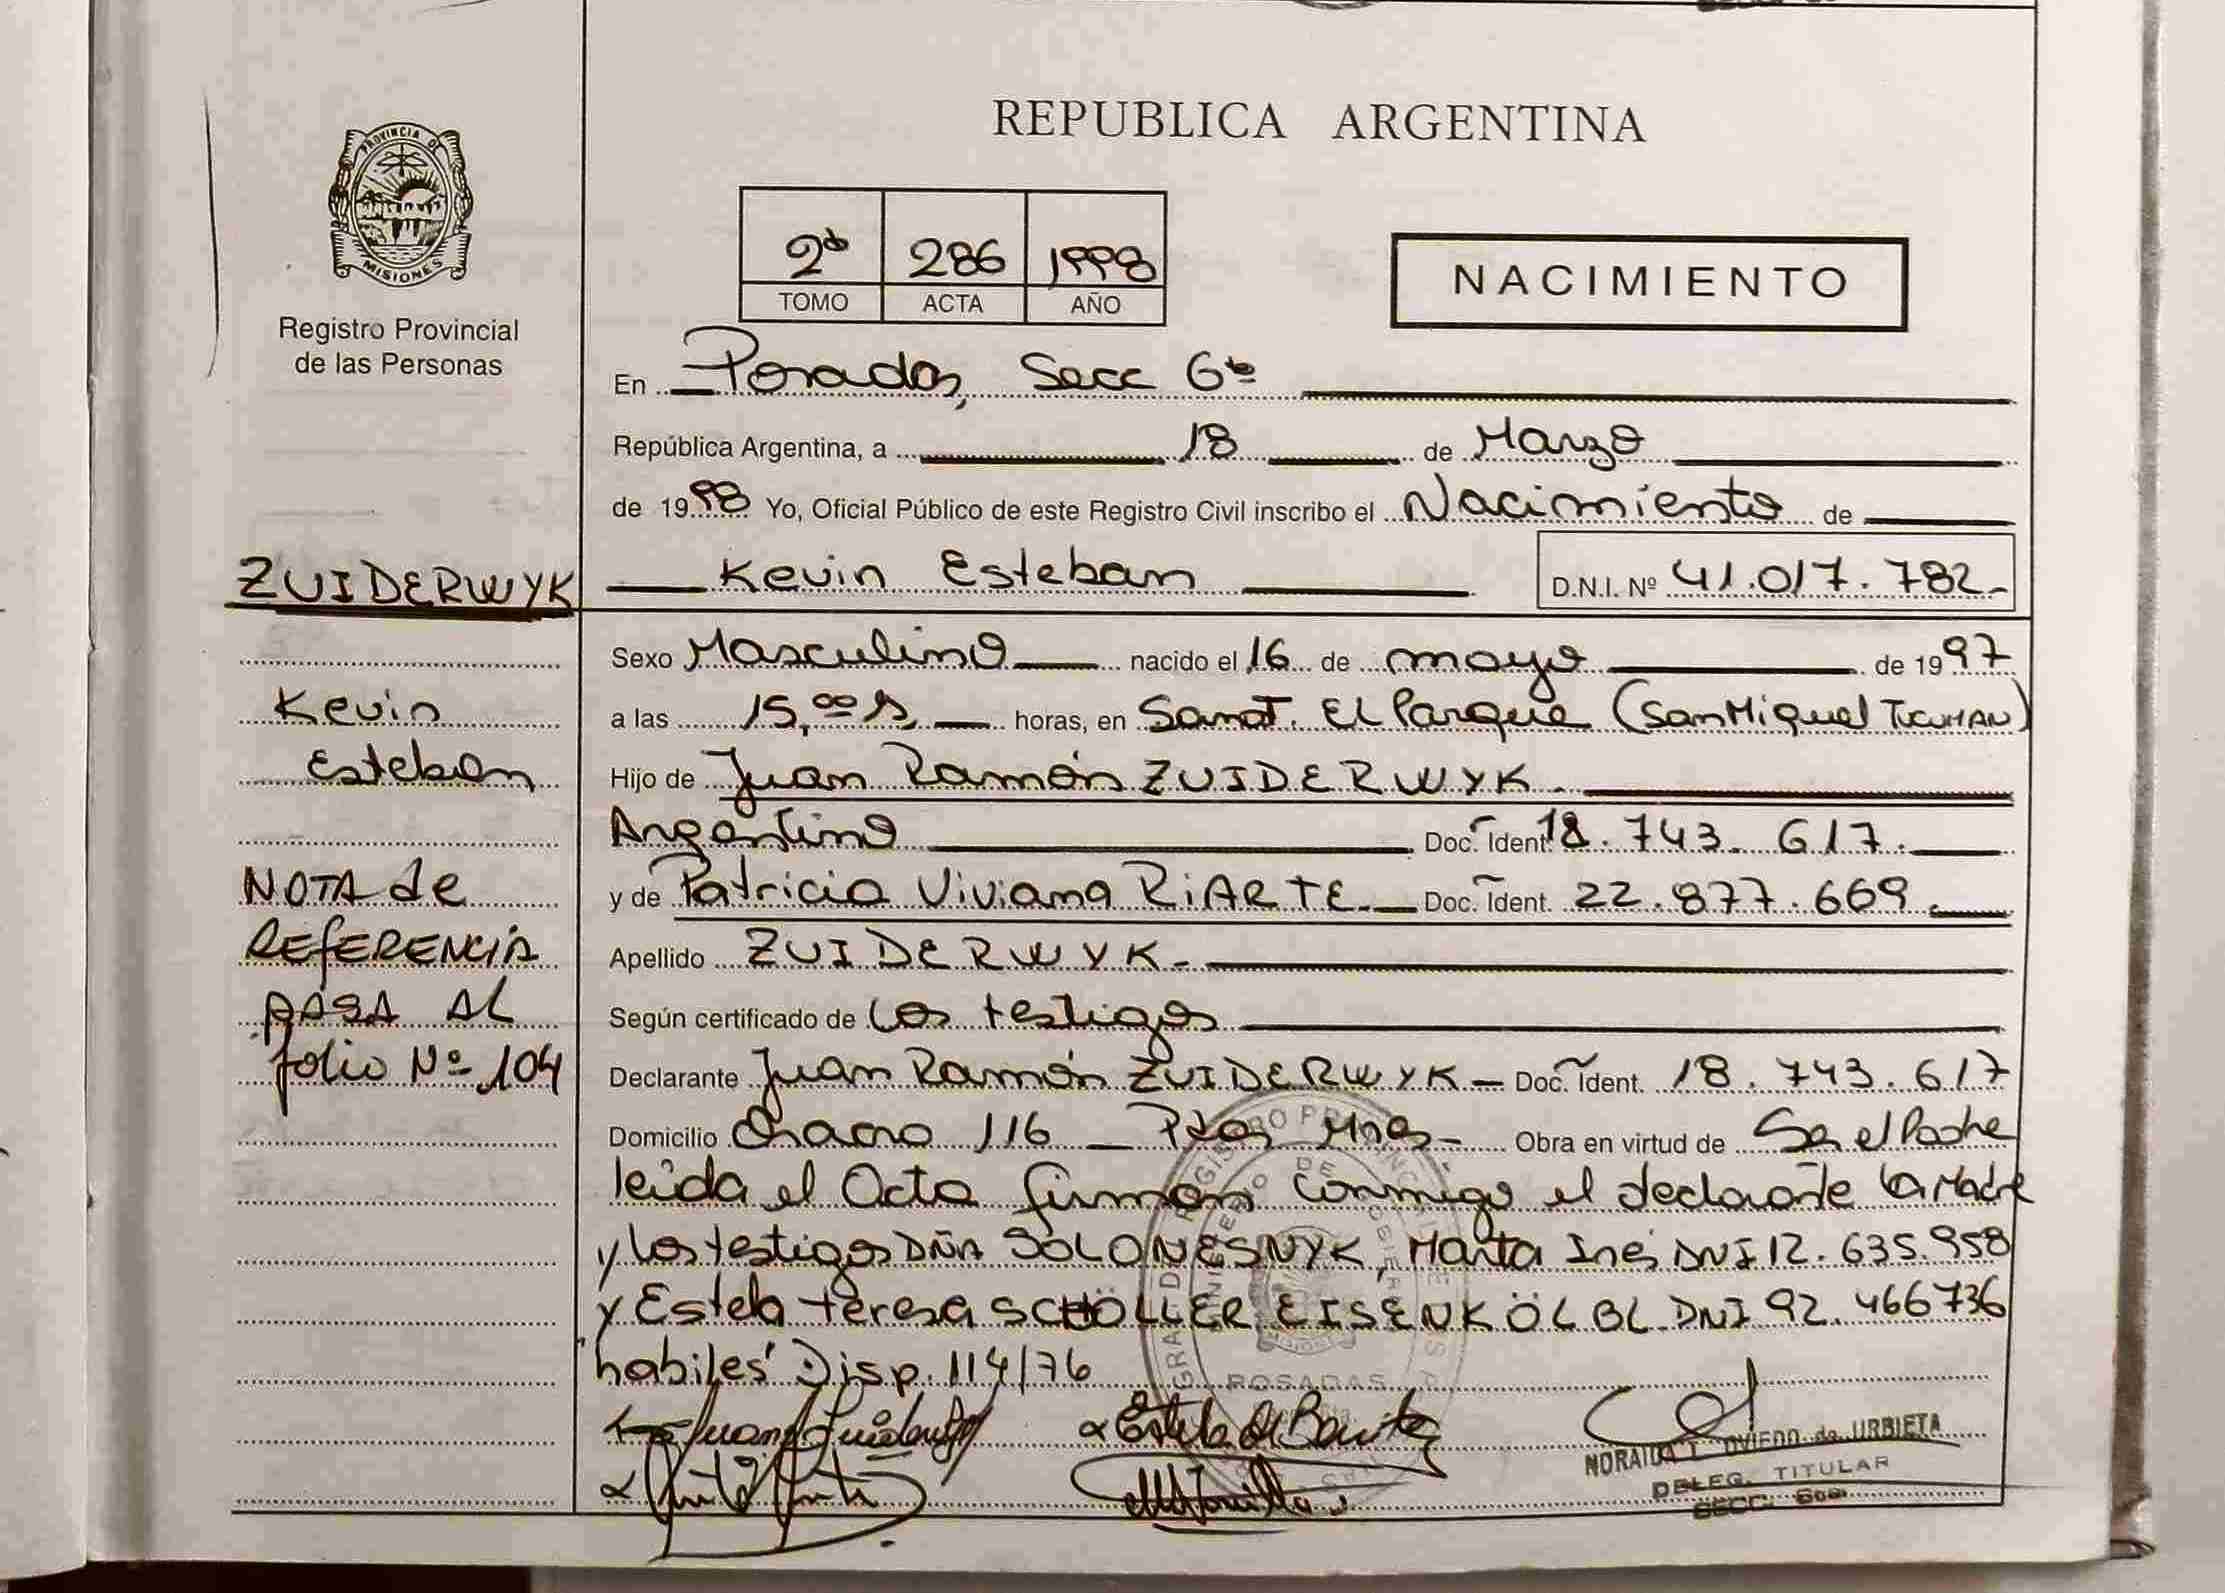 REPUBLICA ARGENTINA
PROVINCIA DE
MISIONES
Registro Provincial
de las Personas
2do 286 1998
TOMO ACTA AÑO
NACIMIENTO
En Posadas, Secc 6ta
República Argentina, a 18 de Marzo
de 1998 Yo, Oficial Público de este Registro Civil inscribo el Nacimiento de
ZUIDERWYK
Kevin Esteban D.N.I. Nº 41.017.782-
Sexo Masculino nacido el 16 de mayo de 1997
Kevin
a las 15,00 hs horas, en Sanat. El Parque (San Miguel TUCUMAN)
Esteban
Hijo de Juan Ramón ZUIDERWYK.
Argentino Doc. Ident. 18.743.617.
NOTA de
y de Patricia Viviana RIARTE.- Doc. Ident. 22.877.669.
REFERENCIA
Apellido ZUIDERWYK-
PASA AL
Según certificado de Los testigos
folio Nº 104
Declarante Juan Ramón ZUIDERWYK- Doc. Ident. 18.743.617
Domicilio Chaco 116 - Pdas Mnes- Obra en virtud de Ser el Padre
leída el Acta firman conmigo el declarante la Madre
y los testigos DÑA SOLONESNYK, Marta Inés DNI 12.635.958
y Estela teresa SCHÖLLER EISENKÖLBL DNI 92.466736
habiles Disp. 114/76
Estela de Benitez
OVIEDO de URBIETA
DELEG. TITULAR
SECC. 6ta
POSADAS